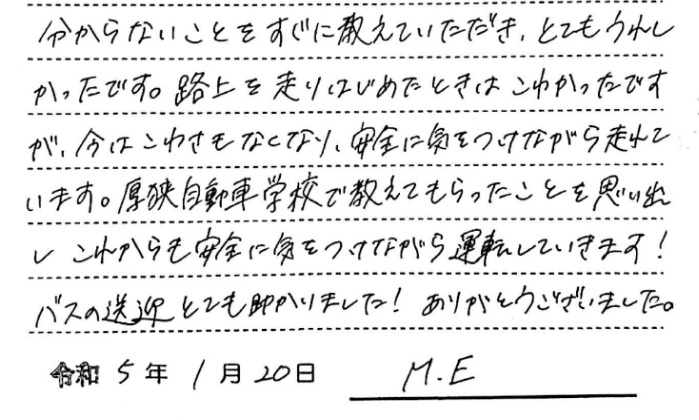 分からないことをすぐに教えていただき、とてもうれし
かったです。路上を走りはじめたときはこわかったです
が、今はこわさもなくなり、安全に気をつけながら走れて
います。厚狭自動車学校で教えてもらったことを思い出
し これからも安全に気をつけながら運転していきます!
バスの送迎とても助かりました! ありがとうございました。
令和 5 年 1 月 20 日 M.E